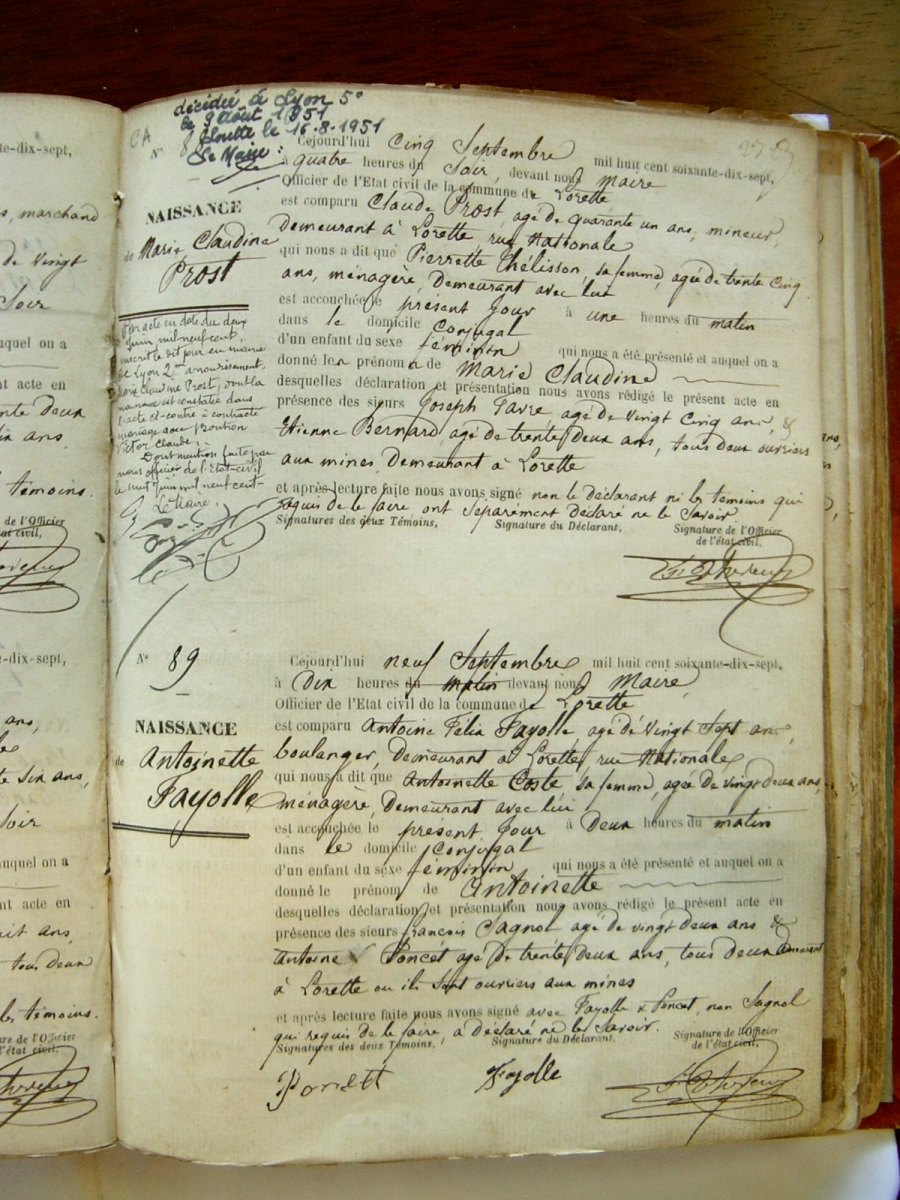 te-dix-sept,
s, marchand
de Vingt
Soir
auquel on a
nt acte en
ente deux
ans
témoins.
de l'Officier
état civil.
e-dix-sept,
ans,
te Six ans,
Soir
auquel on a
nt acte en
uit ans,
tous deux
les témoins.
re de l'Officier
l'état civil.
CA
décédée à Lyon 5e
le 9 août 1951
Lorette le 16-8-1951
Le Maire :
N°
NAISSANCE
de Marie Claudine
Prost
acte en date du deux
juin mil neuf cent,
inscrit le dit jour en mairie
de Lyon 2me arrondissement,
Marie Claudine Prost, dont la
naissance est constatée dans
l'acte ci-contre à contracté
mariage avec
Victor Claude.
Dont mention faite par
nous officier de l'Etat-civil
le huit juin mil neuf cent.
Le Maire.
Cejourd'hui Cinq Septembre mil huit cent soixante-dix-sept,
à quatre heures du Soir, devant nous Maire
Officier de l'Etat civil de la commune de Lorette
est comparu Claude Prost, agé de quarante un ans, mineur,
Demeurant à Lorette, rue Nationale
qui nous a dit que Pierrette Thélisson, sa femme, agée de trente Cinq
ans, ménagère, Demeurant avec lui
est accouchée le présent Jour à une heures du matin
dans le domicile Conjugal
d'un enfant du sexe féminin qui nous a été présenté et auquel on a
donné les prénoms de Marie Claudine
desquelles déclaration et présentation nous avons rédigé le présent acte en
présence des sieurs Joseph Favre agé de Vingt Cinq ans, &
Etienne Bernard, agé de trente Deux ans, tous Deux ouvriers
aux mines, Demeurant à Lorette
et après lecture faite nous avons signé non le Déclarant ni les témoins qui
requis de le faire ont Séparément déclaré ne le Savoir
Signatures des deux Témoins, Signature du Déclarant, Signature de l'Officier
de l'état civil,
N° 89
NAISSANCE
de Antoinette
Fayolle
Cejourd'hui neuf Septembre mil huit cent soixante-dix-sept,
à Dix heures du matin devant nous Maire
Officier de l'Etat civil de la commune de Lorette
est comparu Antoine Félix Fayolle, agé de Vingt Sept ans,
boulanger, Demeurant à Lorette, rue Nationale
qui nous a dit que Antoinette Coste, sa femme, agée De vingt Deux ans,
ménagère, Demeurant avec lui
est accouchée le présent Jour à Deux heures du matin
dans le domicile Conjugal
d'un enfant du sexe féminin qui nous a été présenté et auquel on a
donné le prénom de Antoinette
desquelles déclaration et présentation nous avons rédigé le présent acte en
présence des sieurs françois Sagnol agé de vingt deux ans &
Antoine Poncet agé De trente Deux ans, tous Deux Demeurant
à Lorette ou ils Sont ouvriers aux mines
et après lecture faite nous avons signé avec Fayolle & Poncet, non Sagnol
qui requis de le faire, a déclaré ne le Savoir.
Signatures des deux Témoins, Signature du Déclarant, Signature de l'Officier
de l'état civil,
Poncet Fayolle